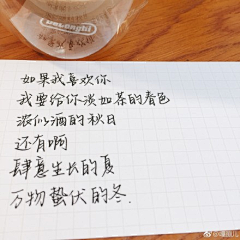 DeLonghi
如果我喜欢你
我要给你淡如茶的春色
浓似酒的秋日
还有啊
肆意生长的夏
万物蛰伏的冬.